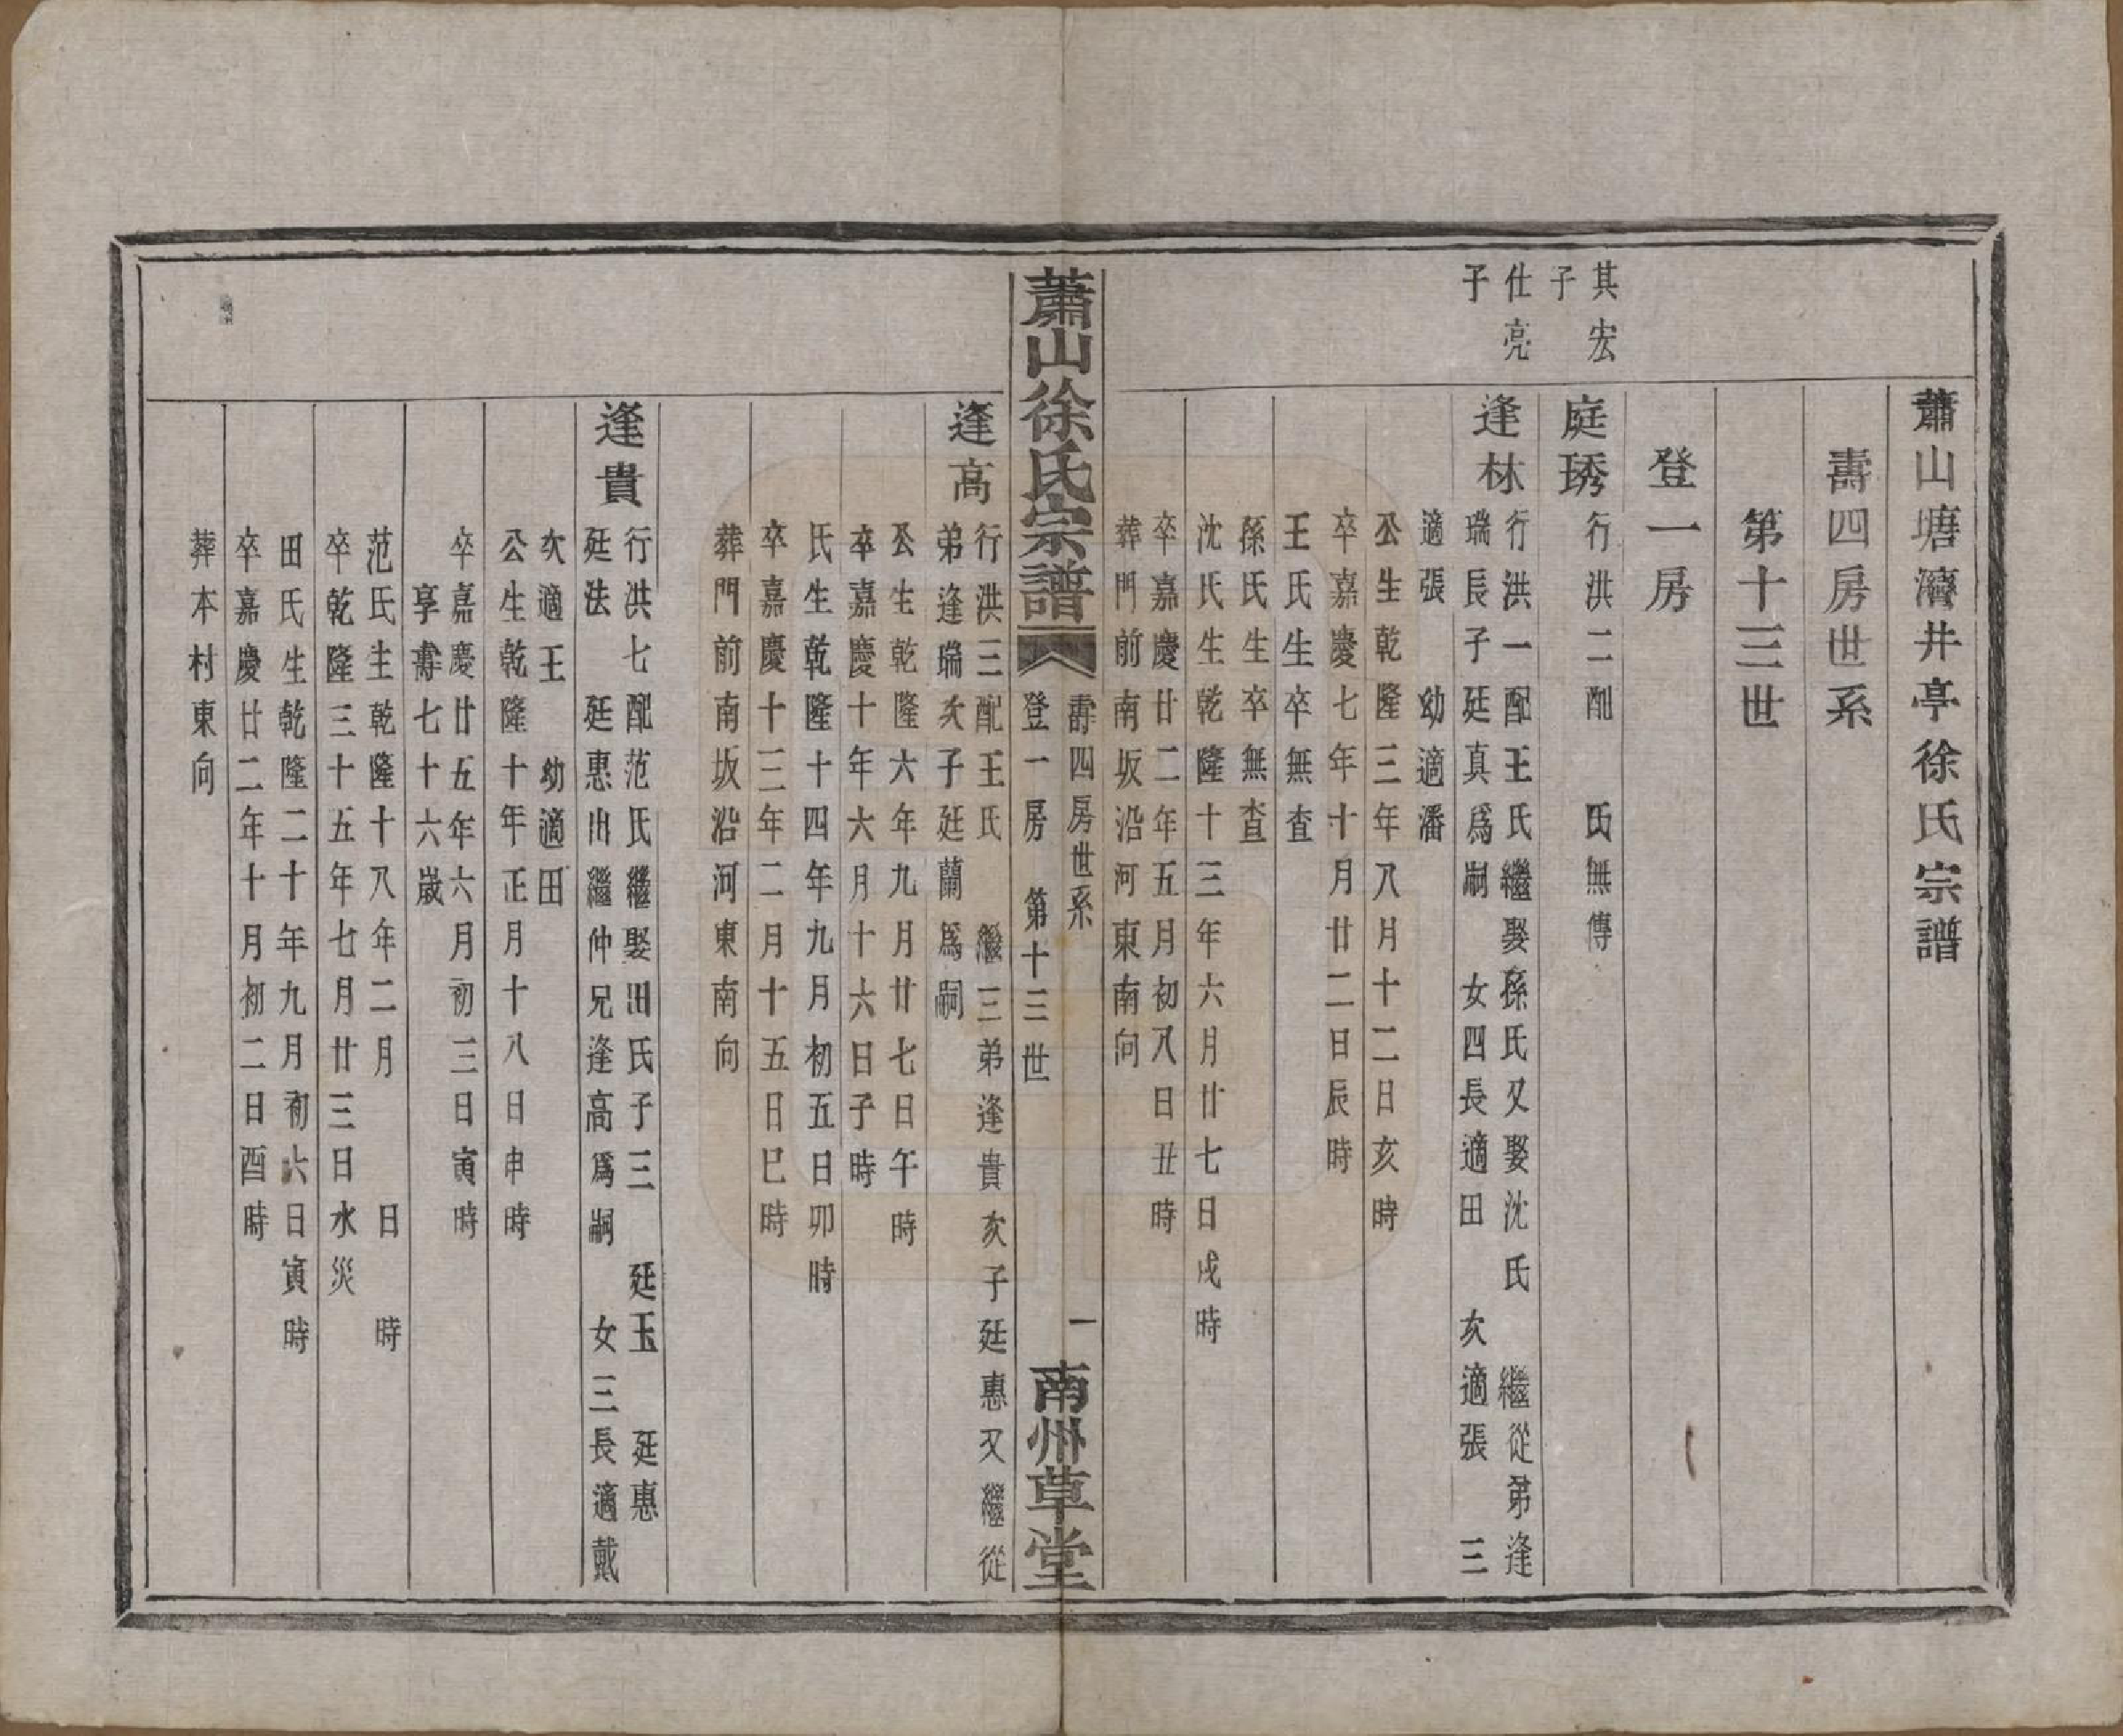 蕭山塘灣井亭徐氏宗譜
壽四房世系
第十三世
登一房
其宏
子
庭琇
行洪二配　氏無傳
仕亮
子
逢林
行洪一配王氏繼娶孫氏又娶沈氏　繼從弟逢
瑞長子廷真爲嗣　女四長適田　次適張　三
適張　幼適潘
公生乾隆三年八月十二日亥時
卒嘉慶七年十月廿二日辰時
王氏生卒無查
孫氏生卒無查
沈氏生乾隆十三年六月廿七日戌時
卒嘉慶廿二年五月初八日丑時
葬門前南坂沿河東南向
蕭山徐氏宗譜
壽四房世系
登一房　第十三世
一
南州草堂
逢高
行洪三配王氏　繼三弟逢貴次子廷惠又繼從
弟逢瑞次子廷蘭爲嗣
公生乾隆六年九月廿七日午時
卒嘉慶十年六月十六日子時
氏生乾隆十四年九月初五日卯時
卒嘉慶十三年二月十五日巳時
葬門前南坂沿河東南向
逢貴
行洪七配范氏繼娶田氏子三　廷玉　廷惠
廷法　廷惠出繼仲兄逢高爲嗣　女三長適戴
次適王　幼適田
公生乾隆十年正月十八日申時
卒嘉慶廿五年六月初三日寅時
享壽七十六歲
范氏生乾隆十八年二月　日　時
卒乾隆三十五年七月廿三日水災
田氏生乾隆二十年九月初六日寅時
卒嘉慶廿二年十月初二日酉時
葬本村東向